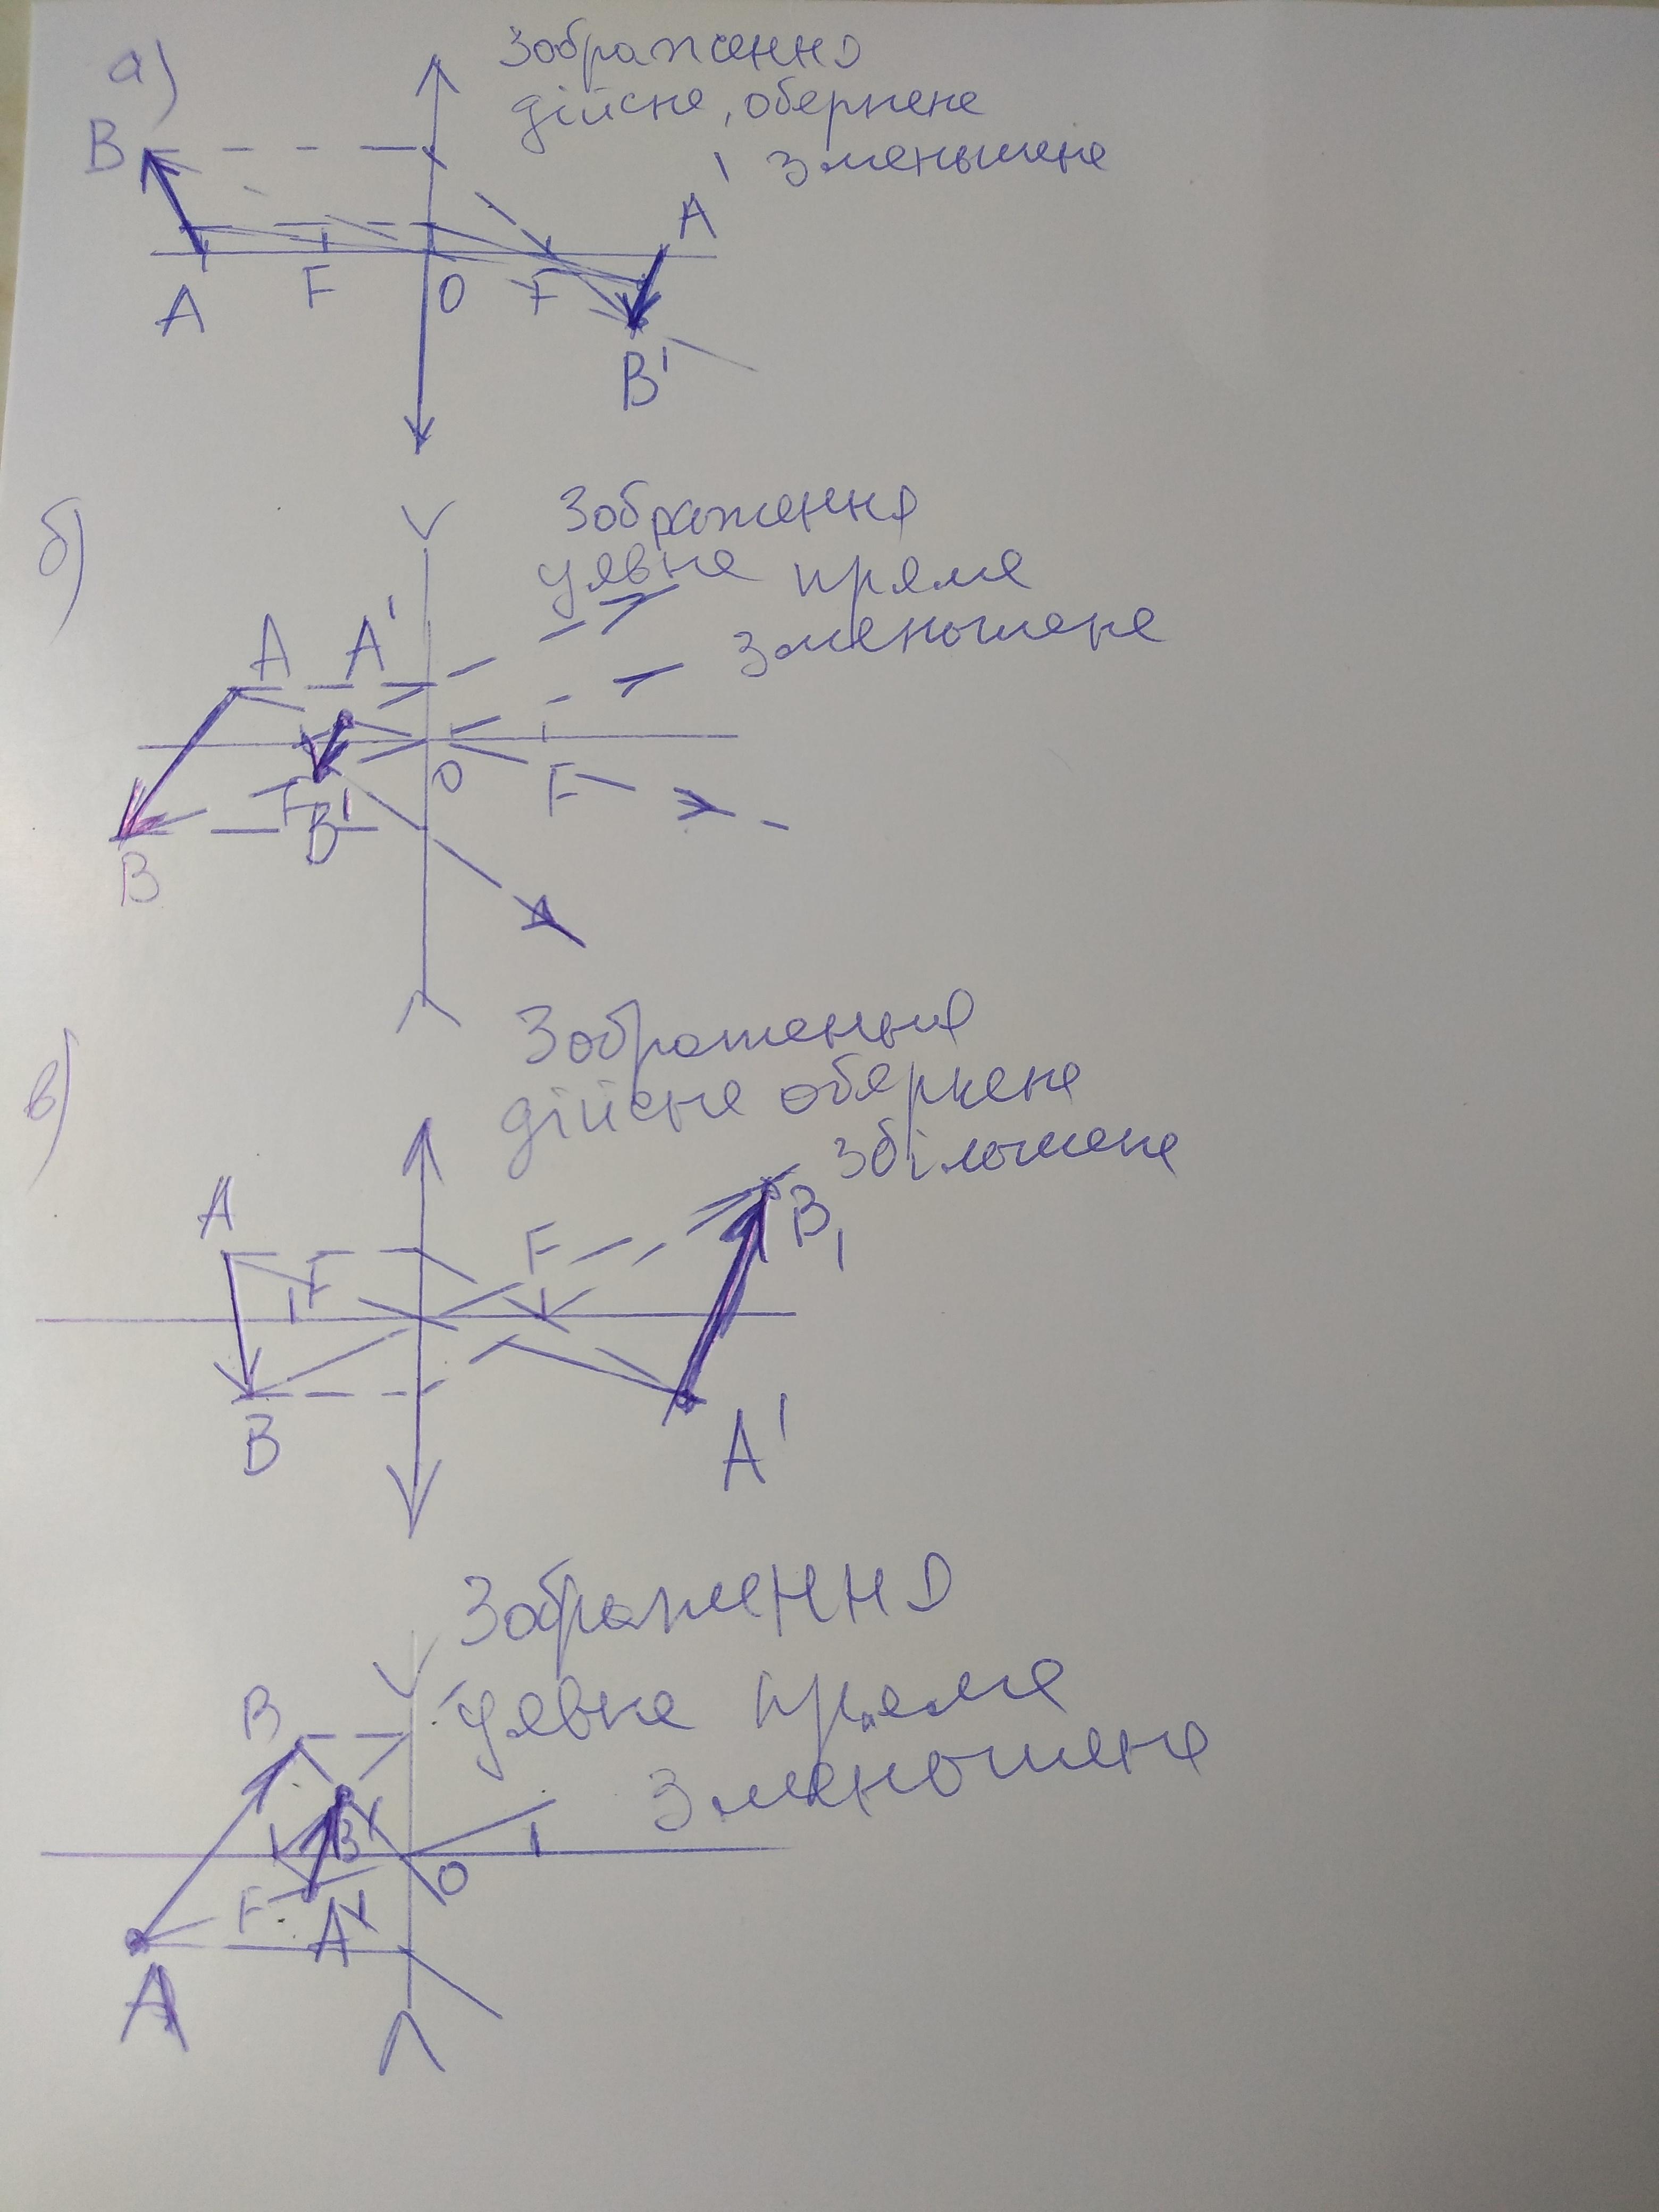 а)
Зображення
дійсне, обернене
зменьшене
B
A'
A
F
O
F
B'
б)
Зображення
уявне пряме
зменьшене
A
A'
O
F
F
B'
B
в)
Зображенья
дійсне обернене
збільшене
A
B1
F
F
B
A'
Зображення
уявне пряме
Зменьшене
B
B'
O
F
A'
A